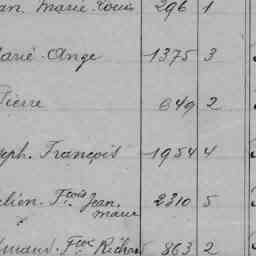 an Marie Louis 296 1
Marie Ange 1375 3
Pierre 649 2
seph. François 1954 4
lien. Fçois Jean 2310 5
marie
mand. Fçois Richard 863 2